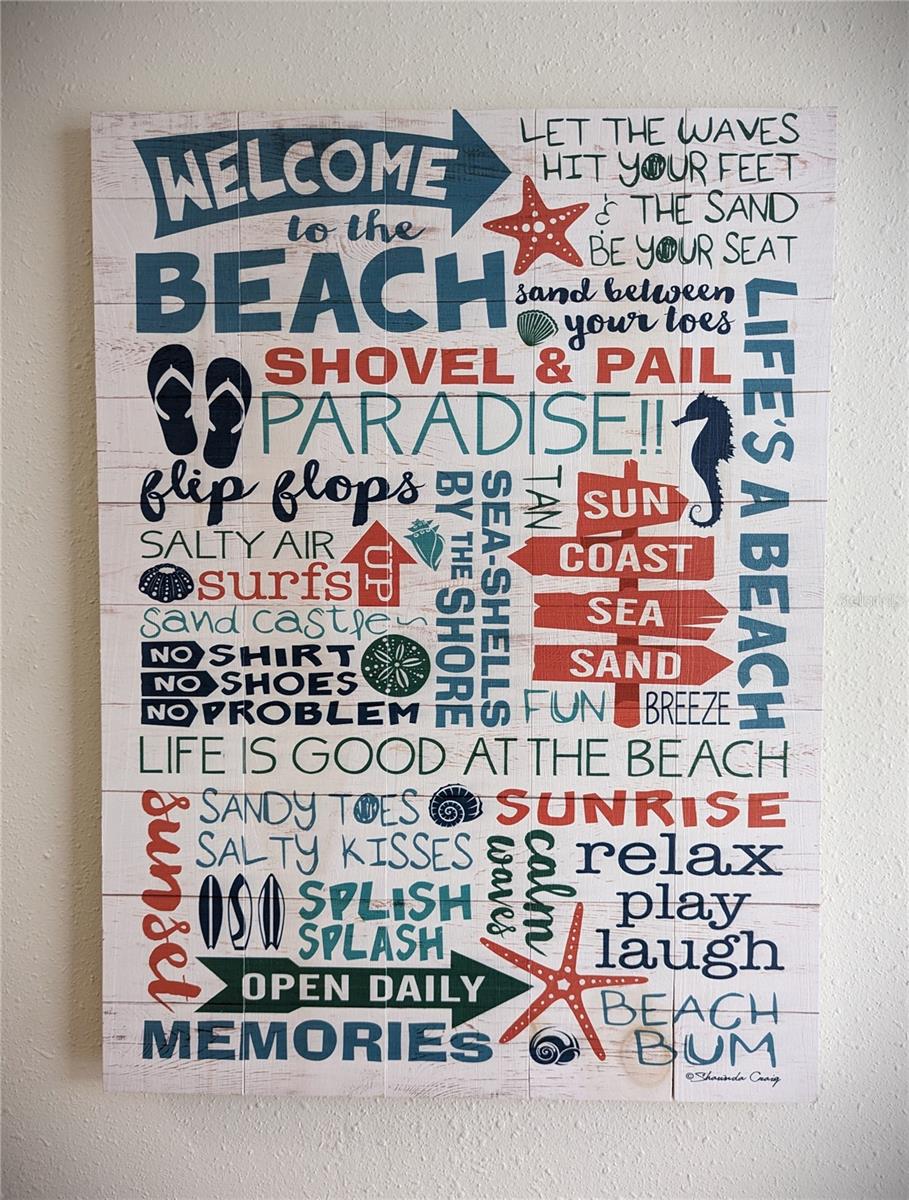 WELCOME
to the
BEACH
LET THE WAVES
HIT YOUR FEET
& THE SAND
BE YOUR SEAT
sand between
your toes
LIFE'S A BEACH
SHOVEL & PAIL
PARADISE!!
flip flops
SALTY AIR
surfs UP
sand castle
NO SHIRT
NO SHOES
NO PROBLEM
SEA-SHELLS
BY THE SHORE
TAN
SUN
COAST
SEA
SAND
FUN
BREEZE
LIFE IS GOOD AT THE BEACH
sunset
SANDY TOES
SALTY KISSES
SUNRISE
calm
waves
relax
play
laugh
SPLISH
SPLASH
OPEN DAILY
MEMORIES
BEACH
BUM
©Shawnda Craig